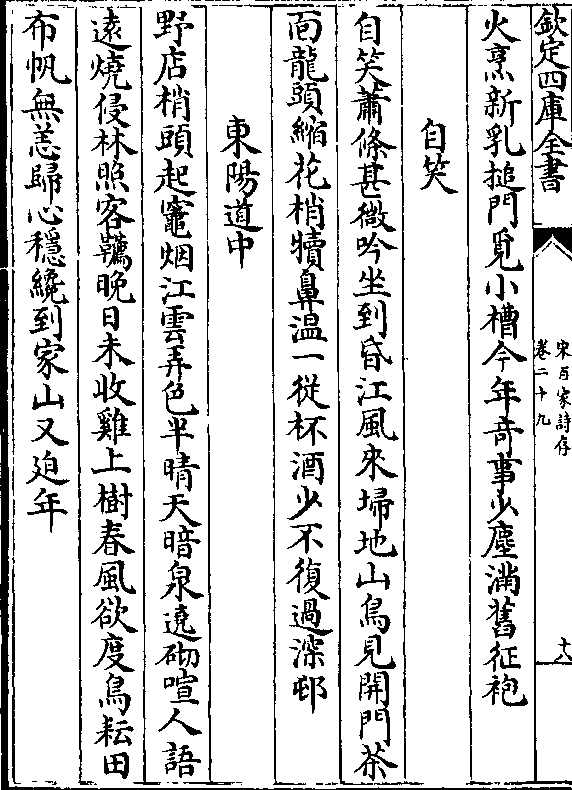 欽定四庫全書
宋百家詩存
卷二十九
十八
火烹新乳搥門覓小槽今年奇事少塵滿舊征袍
自笑
自笑蕭條甚微吟坐到昏江風來埽地山鳥見開門茶
面龍頭縮花梢犢鼻温一從杯酒少不復過深邨
東陽道中
野店梢頭起竈烟江雲弄色半晴天暗泉遶砌喧人語
遠燒侵林照客韉晚日未收雞上樹春風欲度鳥耘田
布帆無恙歸心穩纔到家山又迫年